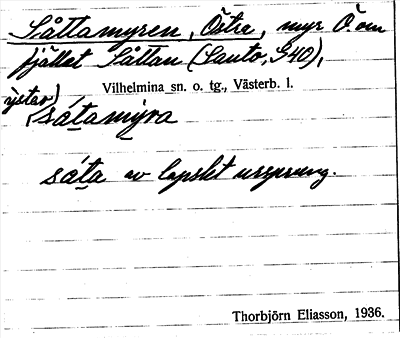 Såttamyren, Östra, myr Ö. om
fjället Såttan (Sauto, G40),
Vilhelmina sn. o. tg., Västerb. l.
sátamýra
sáta av lapskt ursprung.
Thorbjörn Eliasson, 1936.